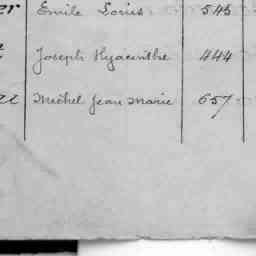 er Emile Louis 545
Joseph Hyacinthe 444
Michel Jean Marie 657